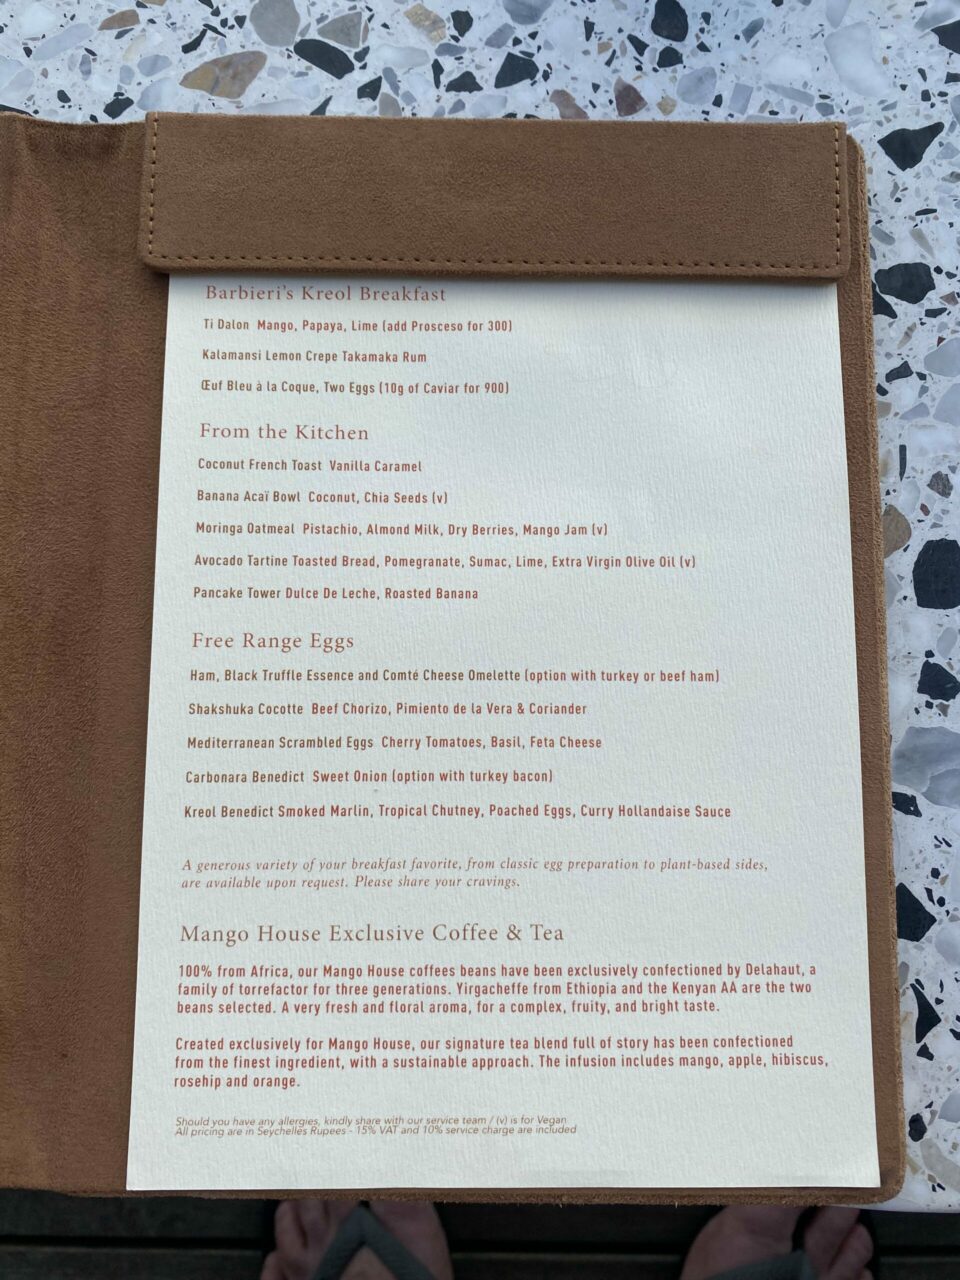 Barbieri's Kreol Breakfast
Ti Dalon Mango, Papaya, Lime (add Prosceso for 300)
Kalamansi Lemon Crepe Takamaka Rum
Œuf Bleu à la Coque, Two Eggs (10g of Caviar for 900)
From the Kitchen
Coconut French Toast Vanilla Caramel
Banana Acaï Bowl Coconut, Chia Seeds (v)
Moringa Oatmeal Pistachio, Almond Milk, Dry Berries, Mango Jam (v)
Avocado Tartine Toasted Bread, Pomegranate, Sumac, Lime, Extra Virgin Olive Oil (v)
Pancake Tower Dulce De Leche, Roasted Banana
Free Range Eggs
Ham, Black Truffle Essence and Comté Cheese Omelette (option with turkey or beef ham)
Shakshuka Cocotte Beef Chorizo, Pimiento de la Vera & Coriander
Mediterranean Scrambled Eggs Cherry Tomatoes, Basil, Feta Cheese
Carbonara Benedict Sweet Onion (option with turkey bacon)
Kreol Benedict Smoked Marlin, Tropical Chutney, Poached Eggs, Curry Hollandaise Sauce
A generous variety of your breakfast favorite, from classic egg preparation to plant-based sides,
are available upon request. Please share your cravings.
Mango House Exclusive Coffee & Tea
100% from Africa, our Mango House coffees beans have been exclusively confectioned by Delahaut, a
family of torrefactor for three generations. Yirgacheffe from Ethiopia and the Kenyan AA are the two
beans selected. A very fresh and floral aroma, for a complex, fruity, and bright taste.
Created exclusively for Mango House, our signature tea blend full of story has been confectioned
from the finest ingredient, with a sustainable approach. The infusion includes mango, apple, hibiscus,
rosehip and orange.
Should you have any allergies, kindly share with our service team / (v) is for Vegan
All pricing are in Seychelles Rupees - 15% VAT and 10% service charge are included